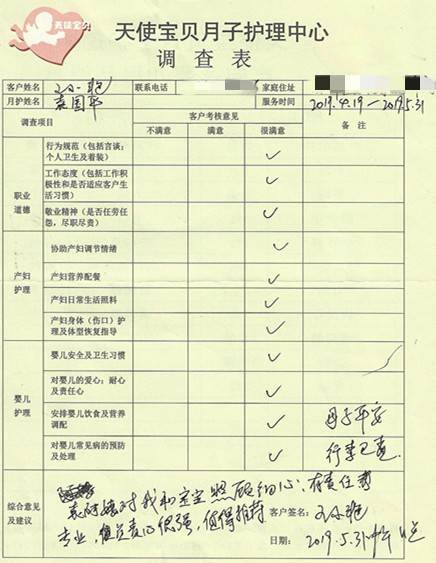 天使宝贝
天使宝贝月子护理中心
调查表
客户姓名 联系电话 家庭住址
月护姓名 袁国华 服务时间 2019.4.19—2019.5.31
调查项目 客户考核意见 备注
不满意 满意 很满意
职业道德
行为规范（包括言谈：个人卫生及着装） ✓
工作态度（包括工作积极性和是否适应客户生活习惯） ✓
敬业精神（是否任劳任怨，尽职尽责） ✓
产妇护理
协助产妇调节情绪 ✓
产妇营养配餐 ✓
产妇日常生活照料 ✓
产妇身体（伤口）护理及体型恢复指导 ✓
婴儿护理
婴儿安全及卫生习惯 ✓
对婴儿的爱心：耐心及责任心 ✓
安排婴儿饮食及营养调配 ✓ 母子平安
对婴儿常见病的预防及处理 ✓ 行李已查
综合意见及建议
袁阿姨对我和宝宝照顾细心，有责任
专业，责任心很强，值得推荐
客户签名：
日期： 2019.5.31